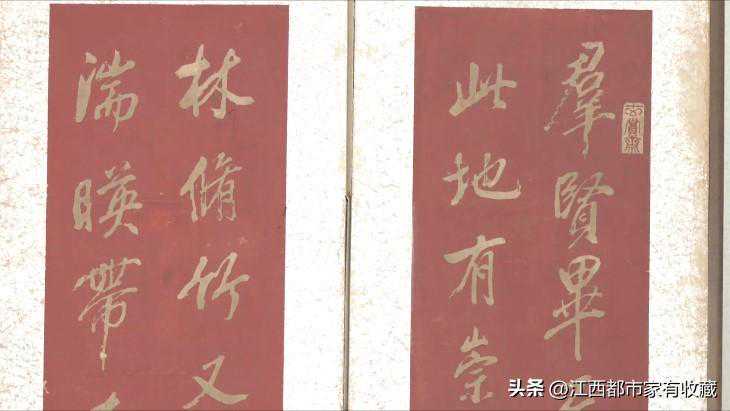 群賢畢
此地有崇
林脩竹又
湍暎帶
头条 @江西都市家有收藏